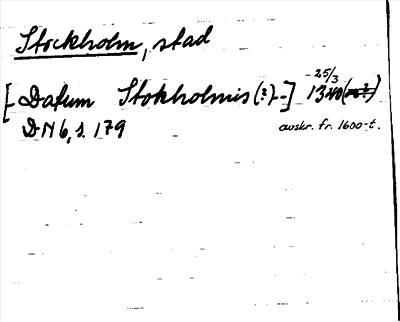 Stockholm, stad
[- Datum Stokholmis (?) --] 25/3 1340
DN 6, s. 179
avskr. fr. 1600-t.